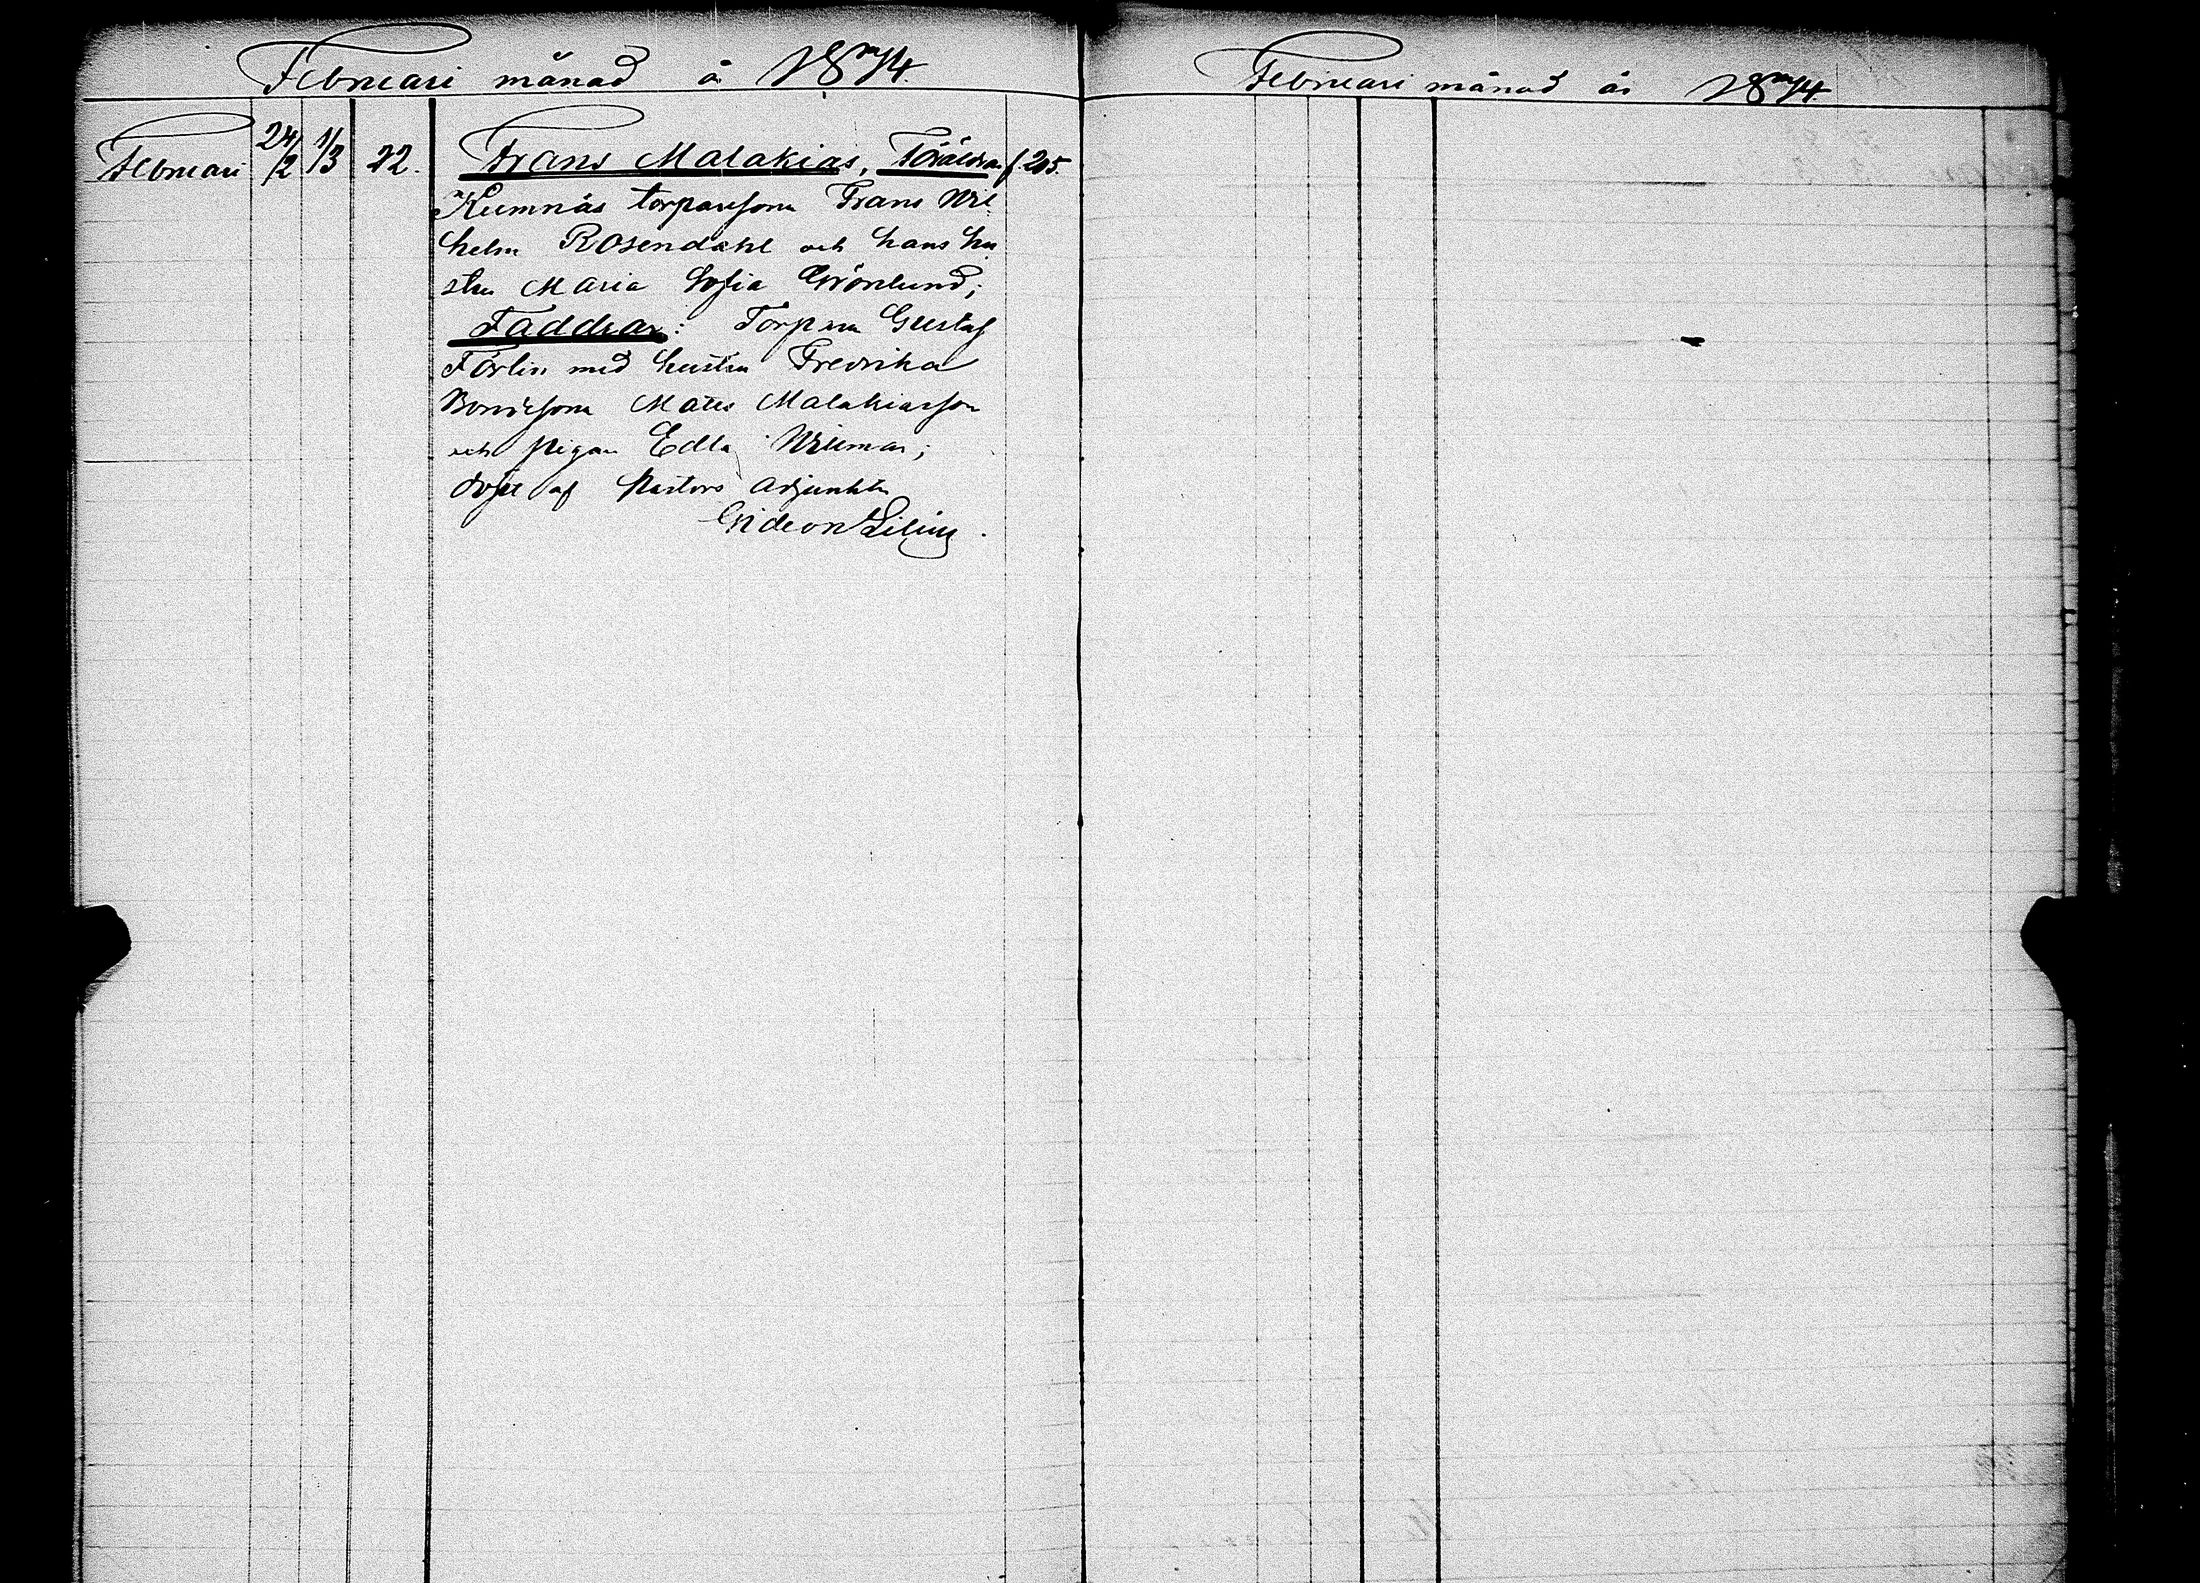 Februari månad år 1874.
Februari 24/2 1/3 22. Frans Malakias, Föräldrar f. 205.
Kumnäs torparesonen Frans Wil-
helm Rosendahl och hans hu-
stru Maria Sofia Grönlund;
Faddrar: Torparen Gustaf
Förlin med hustru Fredrika
Bondesonen Mats Malakiasson
och pigan Edla
döpt af Pastors Adjunkten
Gideon Lilius.
Februari månad år 1874.